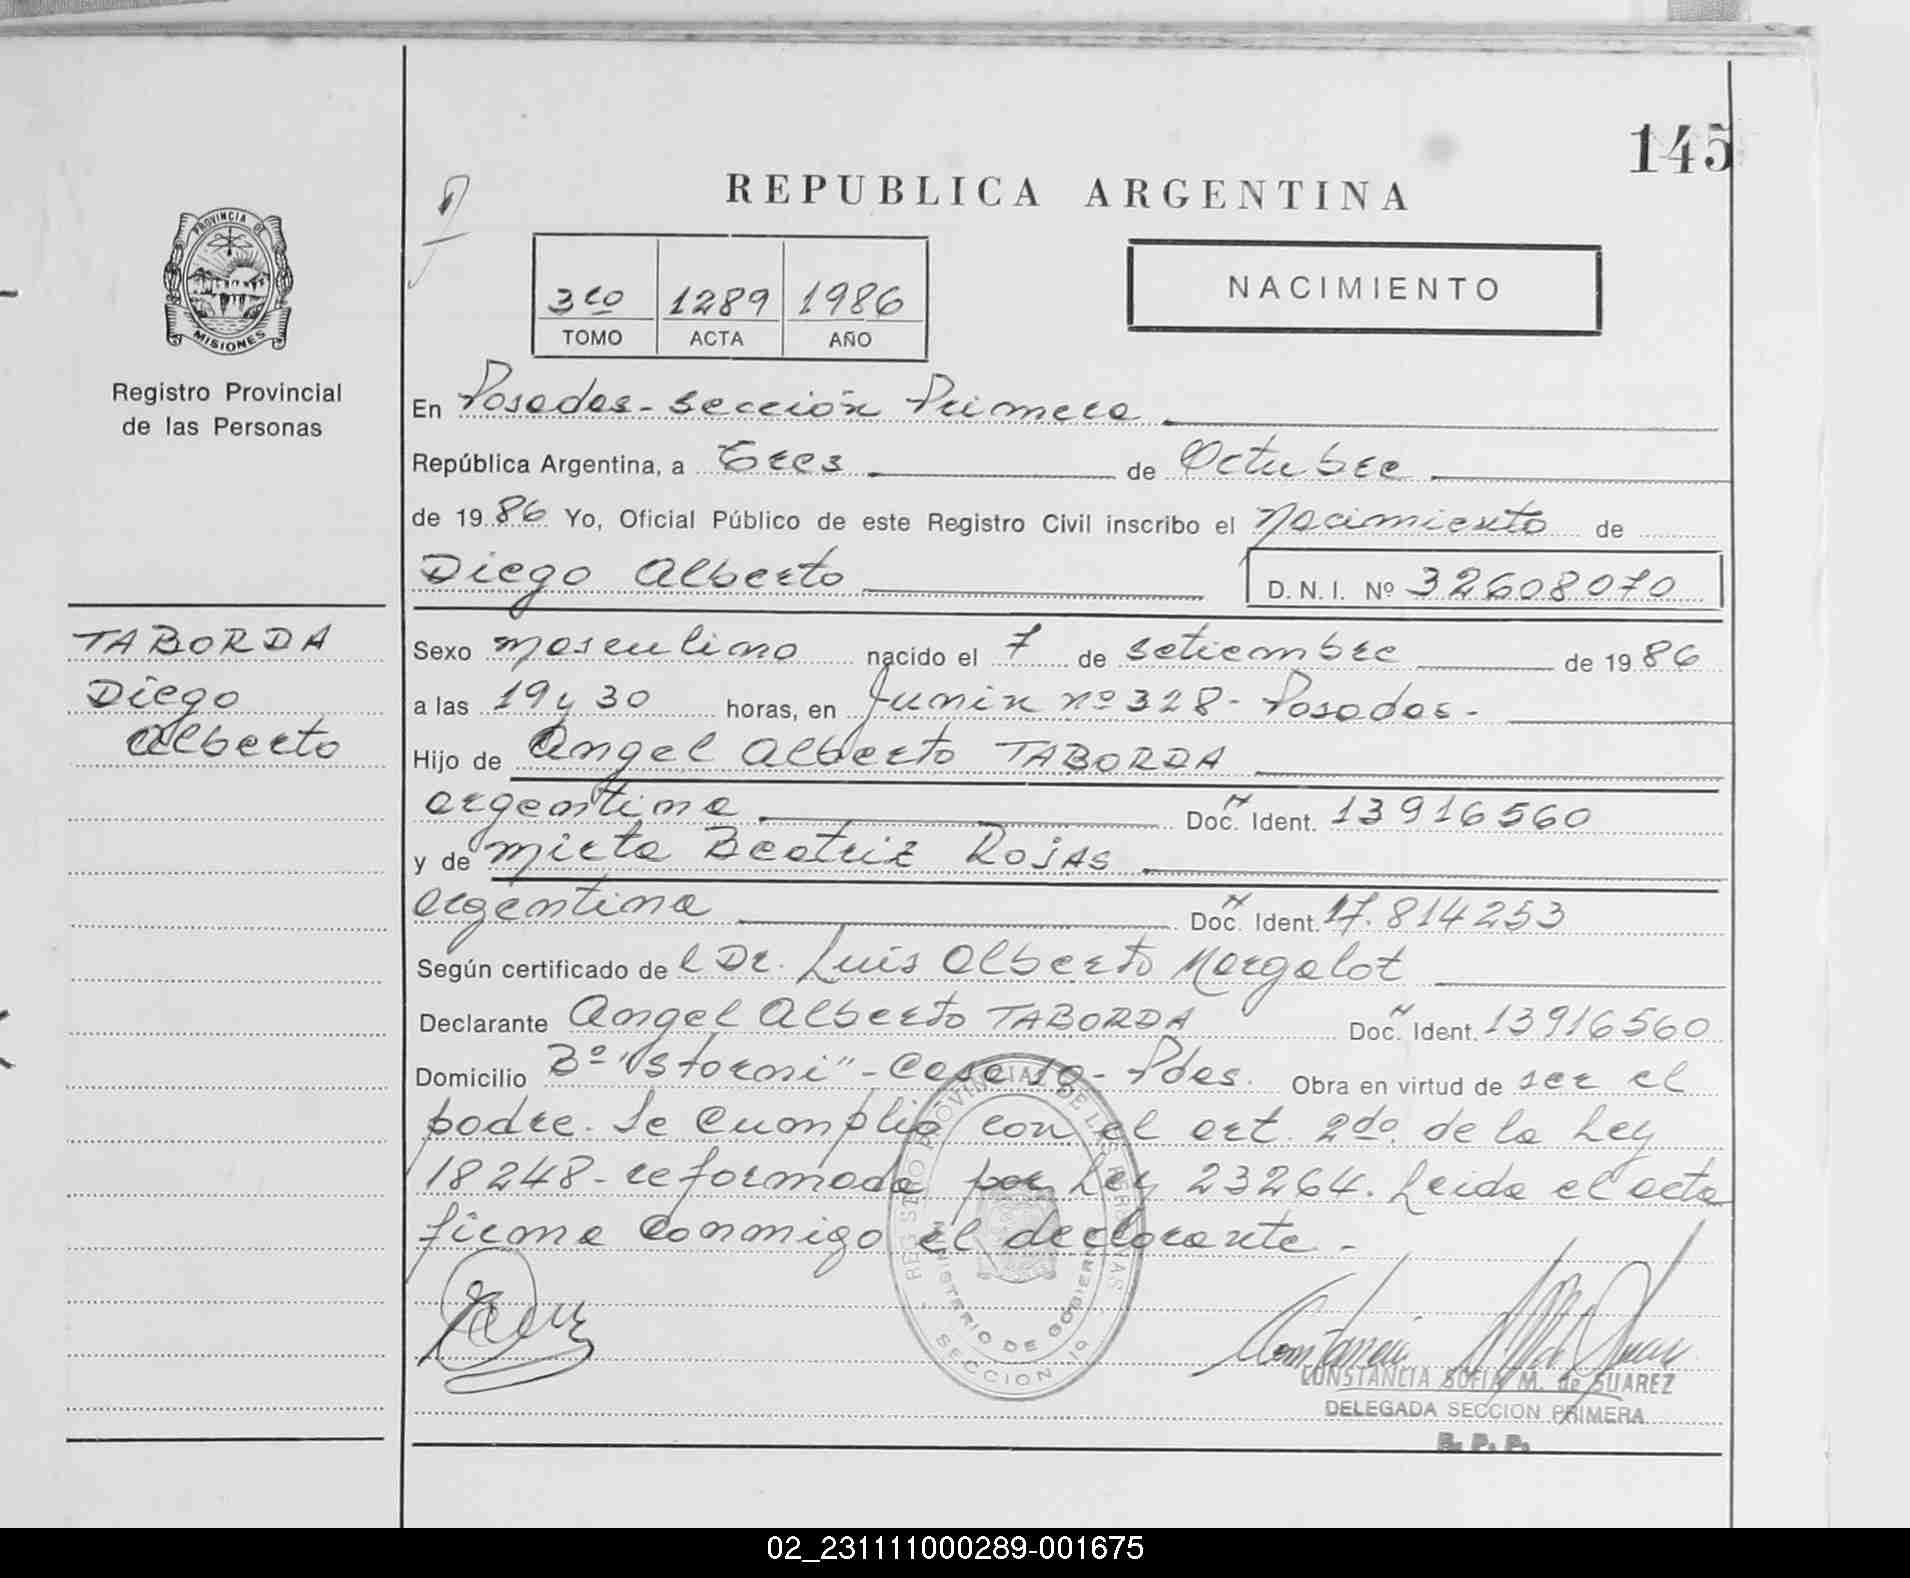 145
REPUBLICA ARGENTINA
PROVINCIA DE
MISIONES
Registro Provincial
de las Personas
3ro 1289 1986
TOMO ACTA AÑO
NACIMIENTO
En Posadas - sección Primera
República Argentina, a tres de Octubre
de 1986 Yo, Oficial Público de este Registro Civil inscribo el nacimiento de
Diego Alberto
D. N. I. Nº 32608070
TABORDA
Diego
Alberto
Sexo masculino nacido el 7 de setiembre de 1986
a las 19 y 30 horas, en Junin nº 328 - Posadas -
Hijo de Angel Alberto TABORDA
argentina Doc. Ident. 13916560
y de Mirta Beatriz Rojas
argentina Doc. Ident. 17.814253
Según certificado de l Dr. Luis Alberto Margalot
Declarante Angel Alberto TABORDA Doc. Ident. 13916560
Domicilio Bº "Storni" - Casa 10 - Pdas. Obra en virtud de ser el
padre. Se Cumplió con el art. 2do. de la Ley
18248 - reformada por Ley 23264. Leida el acta
firma conmigo el declarante. -
REGISTRO PROVINCIAL DE LAS PERSONAS
MINISTERIO DE GOBIERNO
SECCION 1a
CONSTANCIA SOFIA M. de SUAREZ
DELEGADA SECCION PRIMERA
R. P. P.
02_231111000289-001675